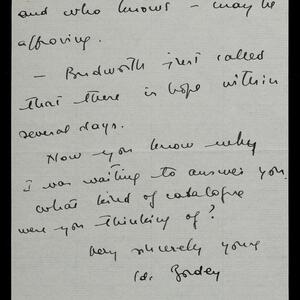 and who knows - may be
approving.
- Budworth just called
that there is hope within
several days.
Now you know why
I was waiting to answer you.
What kind of catalogue
were you thinking of?
Very sincerely yours